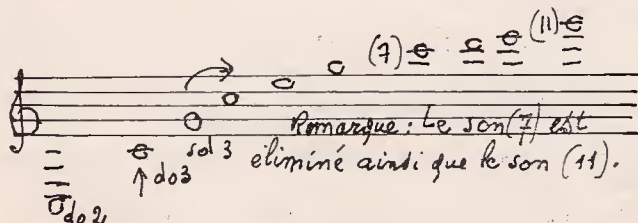 (7) (11)
Remarque : Le son (7) est
éliminé ainsi que le son (11).
sol 3
↑ do3
do2